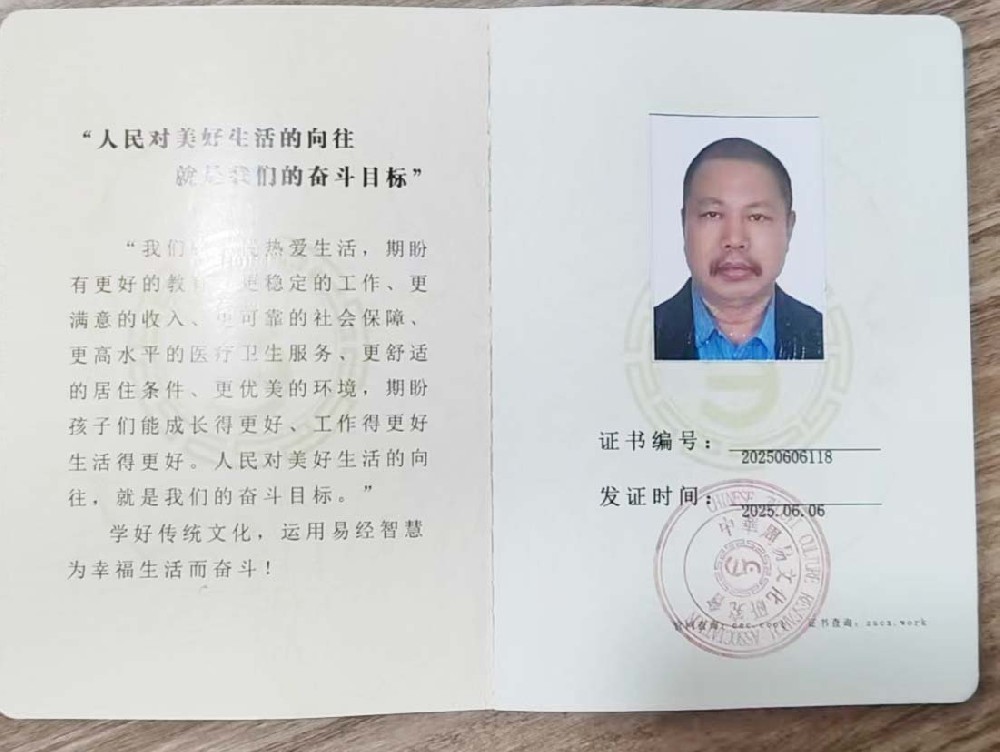 “人民对美好生活的向往
就是我们的奋斗目标”
“我们 民热爱生活，期盼
有更好的教 更稳定的工作、更
满意的收入、更可靠的社会保障、
更高水平的医疗卫生服务、更舒适
的居住条件、更优美的环境，期盼
孩子们能成长得更好、工作得更好
生活得更好。人民对美好生活的向
往，就是我们的奋斗目标。”
学好传统文化，运用易经智慧
为幸福生活而奋斗！
证书编号：
20250606118
发证时间：
2025.06.06
中華周易文化研究會
CULTURE
ASSOCIATION
证书查询：